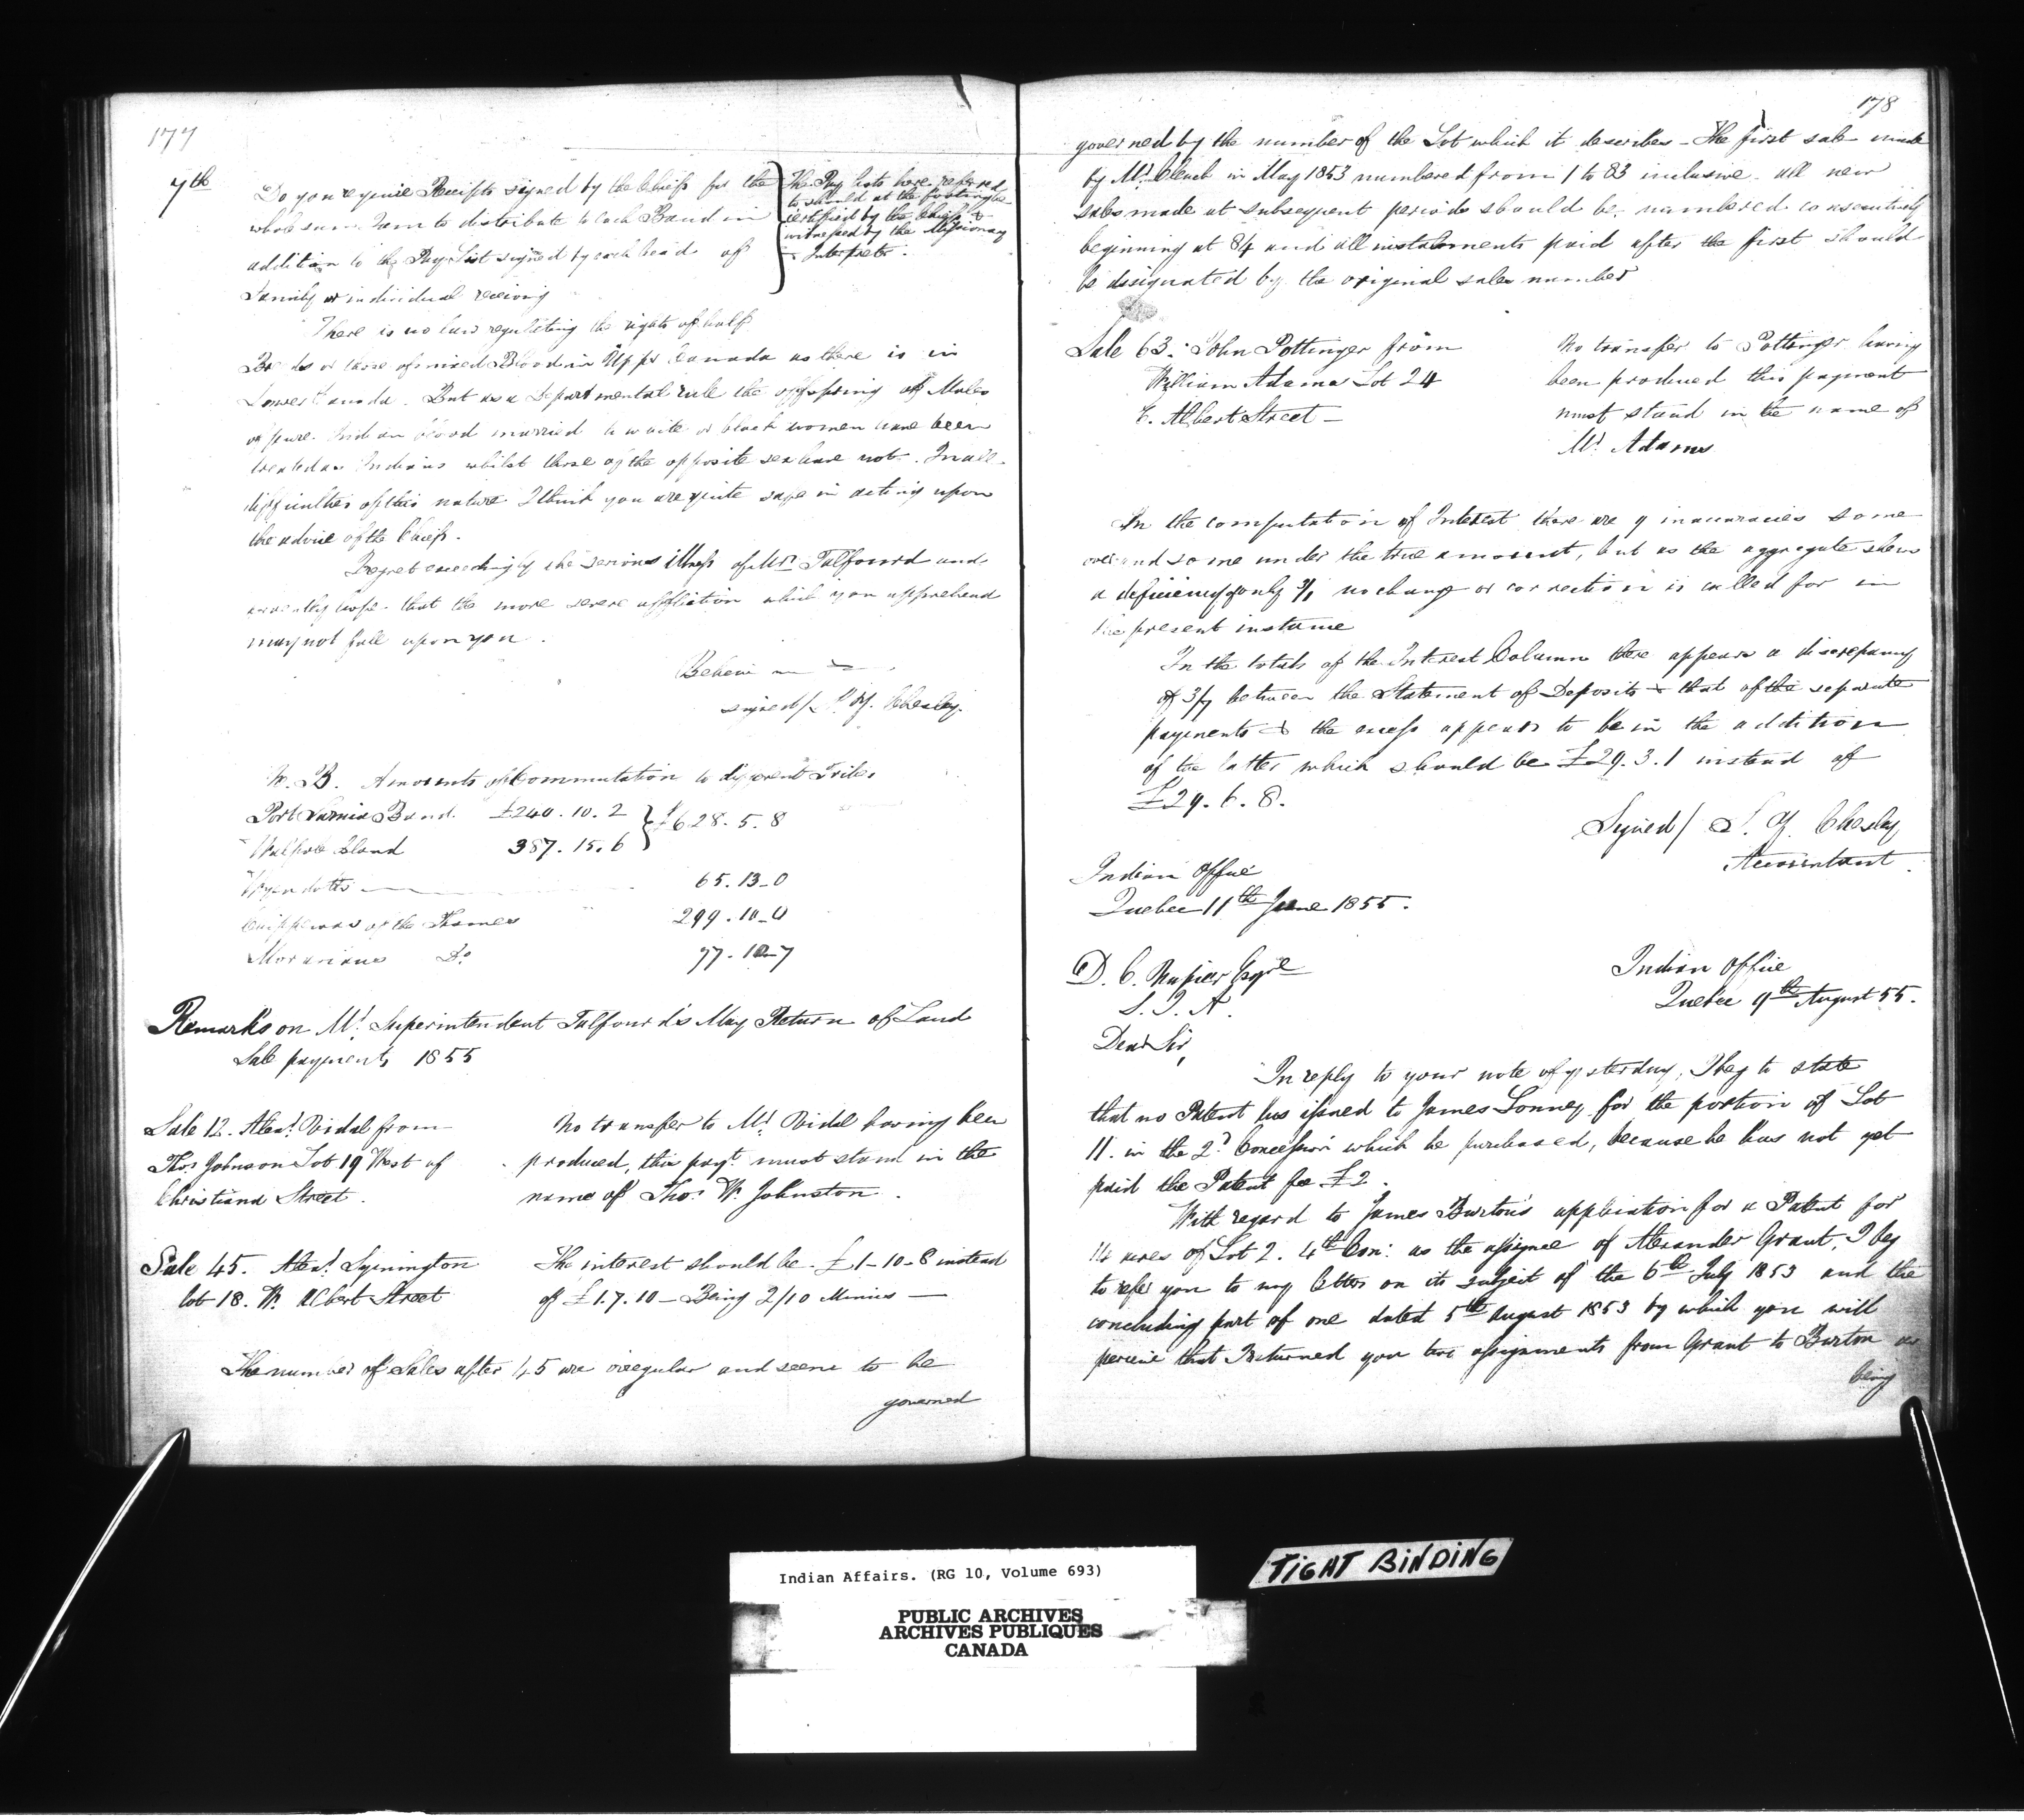 177
7th
Do you require Receipts signed by the Chiefs for the
whole sum I am to distribute to each Band in
addition to the Pay List signed by each head of
Family or individual receiving
The Pay Lists here referred
to should at the footing be
certified by the Chiefs &
witnessed by the Missionary
Interpreter.
There is no law regulating the rights of half
Breeds or those of mixed Blood in Upper Canada as there is in
Lower Canada. But as a Departmental rule the offspring of Males
of pure Indian blood married to white or black women have been
treated as Indians whilst those of the opposite sex have not. In all
difficulties of this nature I think you are quite safe in acting upon
the advice of the Chiefs.
Regret exceedingly the serious illness of Mrs Talfourd and
ardently hope that the more severe affliction which you apprehend
may not fall upon you.
Believe
signed/ S. Y. Chesley.
N. B. Amounts of Commutation to different Tribes
Port Sarnia Band. £240. 10. 2 } £628. 5. 8
Walpole Island 387. 15. 6
Wyandotts 65. 13_0
Chippewas of the Thames 299. 10_0
Moravians Do 77. 10_7
Remarks on Mr. Superintendent Talfourd's May Return of Land
Sale payments 1855
Sale 12. Alexr. Vidal from
Thos Johnson Lot 19 West of
Christiana Street.
No transfer to Mr. Vidal having been
produced, this payt. must stand in the
name of Thos. W. Johnston.
Sale 45. Alexr. Symington
lot 18. W. Albert Street
The interest should be £1-10-8 instead
of £1.7.10 — Being 2/10 Minus —
The number of Sales after 45 are irregular and seem to be
governed
178
governed by the number of the Lot which it describes - The first sale made
by Mr. Clench in May 1853 numbered from 1 to 83 inclusive. all new
sales made at subsequent periods should be numbered consecutively
beginning at 84 and all instalments paid after the first should
be designated by the original sales number
Sale 63. John Pottinger from
William Adams Lot 24
E. Albert Street —
No transfer to Pottinger having
been produced this payment
must stand in the name of
Mr. Adams
In the computation of Interest there are 9 inaccuracies some
over and some under the true amount, but as the aggregate shews
a deficiency of only 3/1 no change or correction is called for in
the present instance
In the totals of the Interest Column there appears a discrepancy
of 3/7 between the Statement of Deposits & that of the separate
payments & the excess appears to be in the addition
of the latter which should be £29. 3. 1 instead of
£29. 6. 8.
Signed/ S. Y. Chesley
Accountant.
Indian Office
Quebec 11th June 1855.
D. C. Napier Esqre
S. I. A.
Indian Office
Quebec 9th August 55.
Dear Sir,
In reply to your note of yesterday, I beg to state
that no Patent has issued to James Lonney for the portion of Lot
11. in the 2d Concession which he purchased, because he has not yet
paid the Patent fee £2.
With regard to James Burton's application for a Patent for
14 acres of Lot 2. 4th Con: as the assignee of Alexander Grant, I beg
to refer you to my letter on its subject of the 6th July 1853 and the
concluding part of one dated 5th August 1853 by which you will
perceive that I returned you two assignments from Grant to Burton as
being
Indian Affairs. (RG 10, Volume 693)
PUBLIC ARCHIVES
ARCHIVES PUBLIQUES
CANADA
TIGHT BINDING